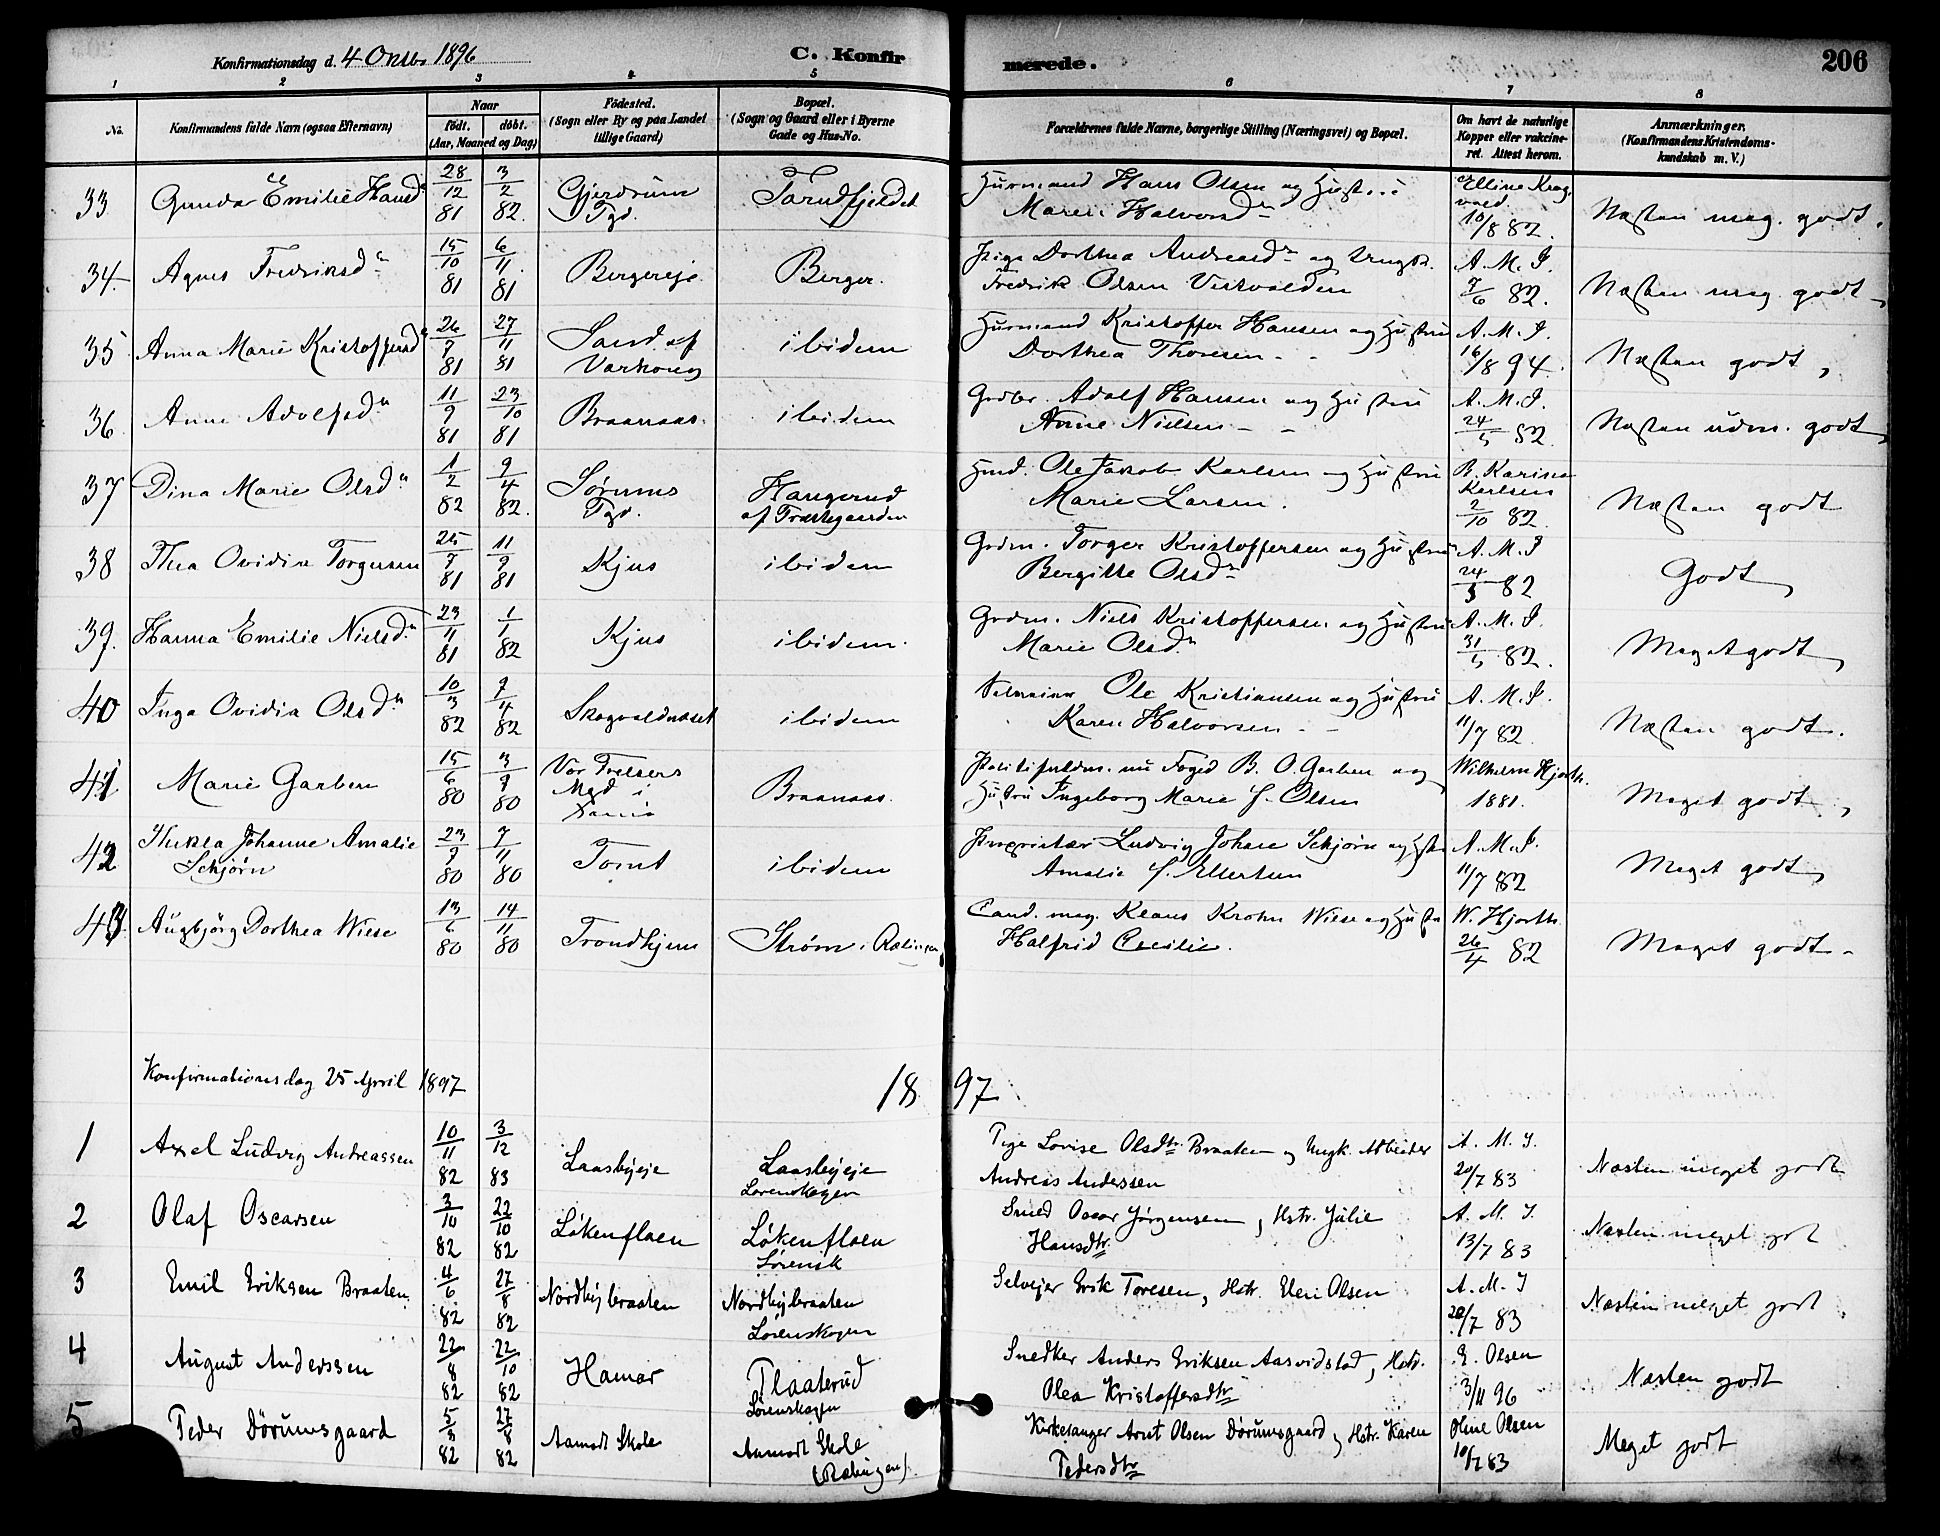 Konfirmationsdag d. 4 Oktbr 1896
C. Konfirmerede.
206
1 2 3 4 5 6 7 8
No. Konfirmandens fulde Navn (ogsaa Efternavn) Naar född. döbt. (Aar, Maaned og Dag) Födested. (Sogn eller By og paa Landet tillige Gaard) Bopæl. (Sogn og Gaard eller i Byerne Gade og Hus-No. Forældrenes fulde Navne, borgerlige Stilling (Næringsvei) og Bopæl. Om havt de naturlige Kopper eller vaccineret. Attest herom. Anmærkninger. (Konfirmandens Kristendomskundskab m. V.)
33 Gunda Emilie Hansd. 28/12 81 3/2 82. Gjerdrum Pgd. Tarudfjeldet Husmand Hans Olsen og Hustru Maren Halvorsdr Elline Krogvold. 10/8 82. Næsten meg. godt.
34 Agnes Fredriksdr 15/10 81 6/11 81 Bergereje Berger. Pige Dorthea Andreasdr og Ungk. Fredrik Olsen A. M. I. 7/6 82. Næsten meg godt
35 Anna Marie Kristoffersdr 26/7 81 27/11 81 Sand af ibidem Husmand Kristoffer Hansen og Hustru Dorthea Thoresen A. M. I. 16/8 94. Næsten godt
36 Anna Adolfsdr 11/9 81 23/10 81 Braanaas. ibidem Grdbr. Adolf Hansen og Hustru Anne Nielsen A. M. I. 24/5 82. Næsten udm. godt
37 Dina Marie Olsdr 1/2 82 9/4 82. Sørums Pgd. Haugerud af Prestegaarden Hmd. Ole Jakob Karlsen og Hustru Marie Larsen. B. Karine Karlsen 2/10 82. Næsten godt
38 Thea Ovidia Torgersen 25/7 81 11/9 81 Kjus ibidem Grdm. Torger Kristoffersen og Hustru Bergitte Olsdr A. M. I 24/5 82 Godt
39. Hanna Emilie Nielsdr 23/11 81 1/1 82 Kjus ibidem. Grdm. Niels Kristoffersen og Hustru Marie Olsdr A. M. I. 31/5 82. Meget godt
40 Inga Ovidia Olsdr 10/3 82 9/4 82 Skogvoldnæset ibidem Ole Kristiansen og Hustru Karen Halvorsen A. M. I. 11/7 82 Næsten godt.
41 Marie Garben 15/6 80 3/9 80 Vor Frelsers Mgd i Xania Braanaas. Politifuldm. nu Foged B. O. Garben og Hustru Ingeborg Marie f. Olsen Wilhelm Hjorth. 1881. Meget godt
42 Thekla Johanne Amalie Schjørn 23/9 80 7/11 80 Tomt ibidem Proprietær Ludvig Johan Schjørn og Hstr Amalie f. Ellertsen A. M. I. 11/7 82 Meget godt
43 Augbjörg Dorthea Wiese 13/6 80 14/11 80 Trondhjem Strøm i Rælingen Cand. mag. Klaus Krohn Wiese og Hustru Halfrid Cecilie. W. Hjorth. 26/4 82 Meget godt
Konfirmationsdag 25 April 1897
1897
1 Axel Ludvig Andreassen 10/11 82 3/12 83 Laasbyeje Laasbyeje Lørenskogen Pige Lovise Olsdtr. Braaten og Ungk. Arbeider Andreas Anderssen A. M. I. 20/7 83 Næsten meget godt
2 Olaf Oscarsen 3/10 82 22/10 82 Løkenflaen Løkenflaen Lørensk Smed Oscar Jørgensen, Hstr. Julie Hansdtr. A. M. I. 13/7 83 Næsten meget godt
3 Emil Eriksen Braaten 4/6 82 27/8 82 Nordbybraaten Nordbybraaten Lørenskogen Selvejer Erik Toresen, Hstr. Eleni Olsen A. M. I 20/7 83 Næsten meget godt
4 August Anderssen 22/8 82 22/10 82 Hamar Plaaterud Lørenskogen Snedker Anders Eriksen Aasvidstad, Hstr. Olea Kristoffersdtr E. Olsen 3/11 96 Næsten godt
5 Peder Dörumsgaard 5/3 82 27/8 82 Aamodt Skole Aamodt Skole (Rælingen). Kirkesanger Arnt Olsen Dörumsgaard og Hstr. Karen Pedersdtr Oline Olsen 10/7 83 Meget godt